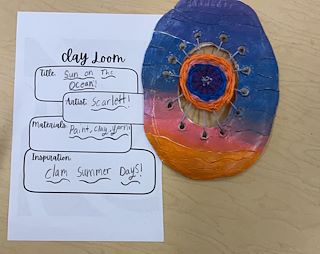 clay Loom
Title: Sun on The
Ocean!
Artist: Scarlett!
Materials: Paint, clay, Yarn
Inspiration:
Clam Summer Days!